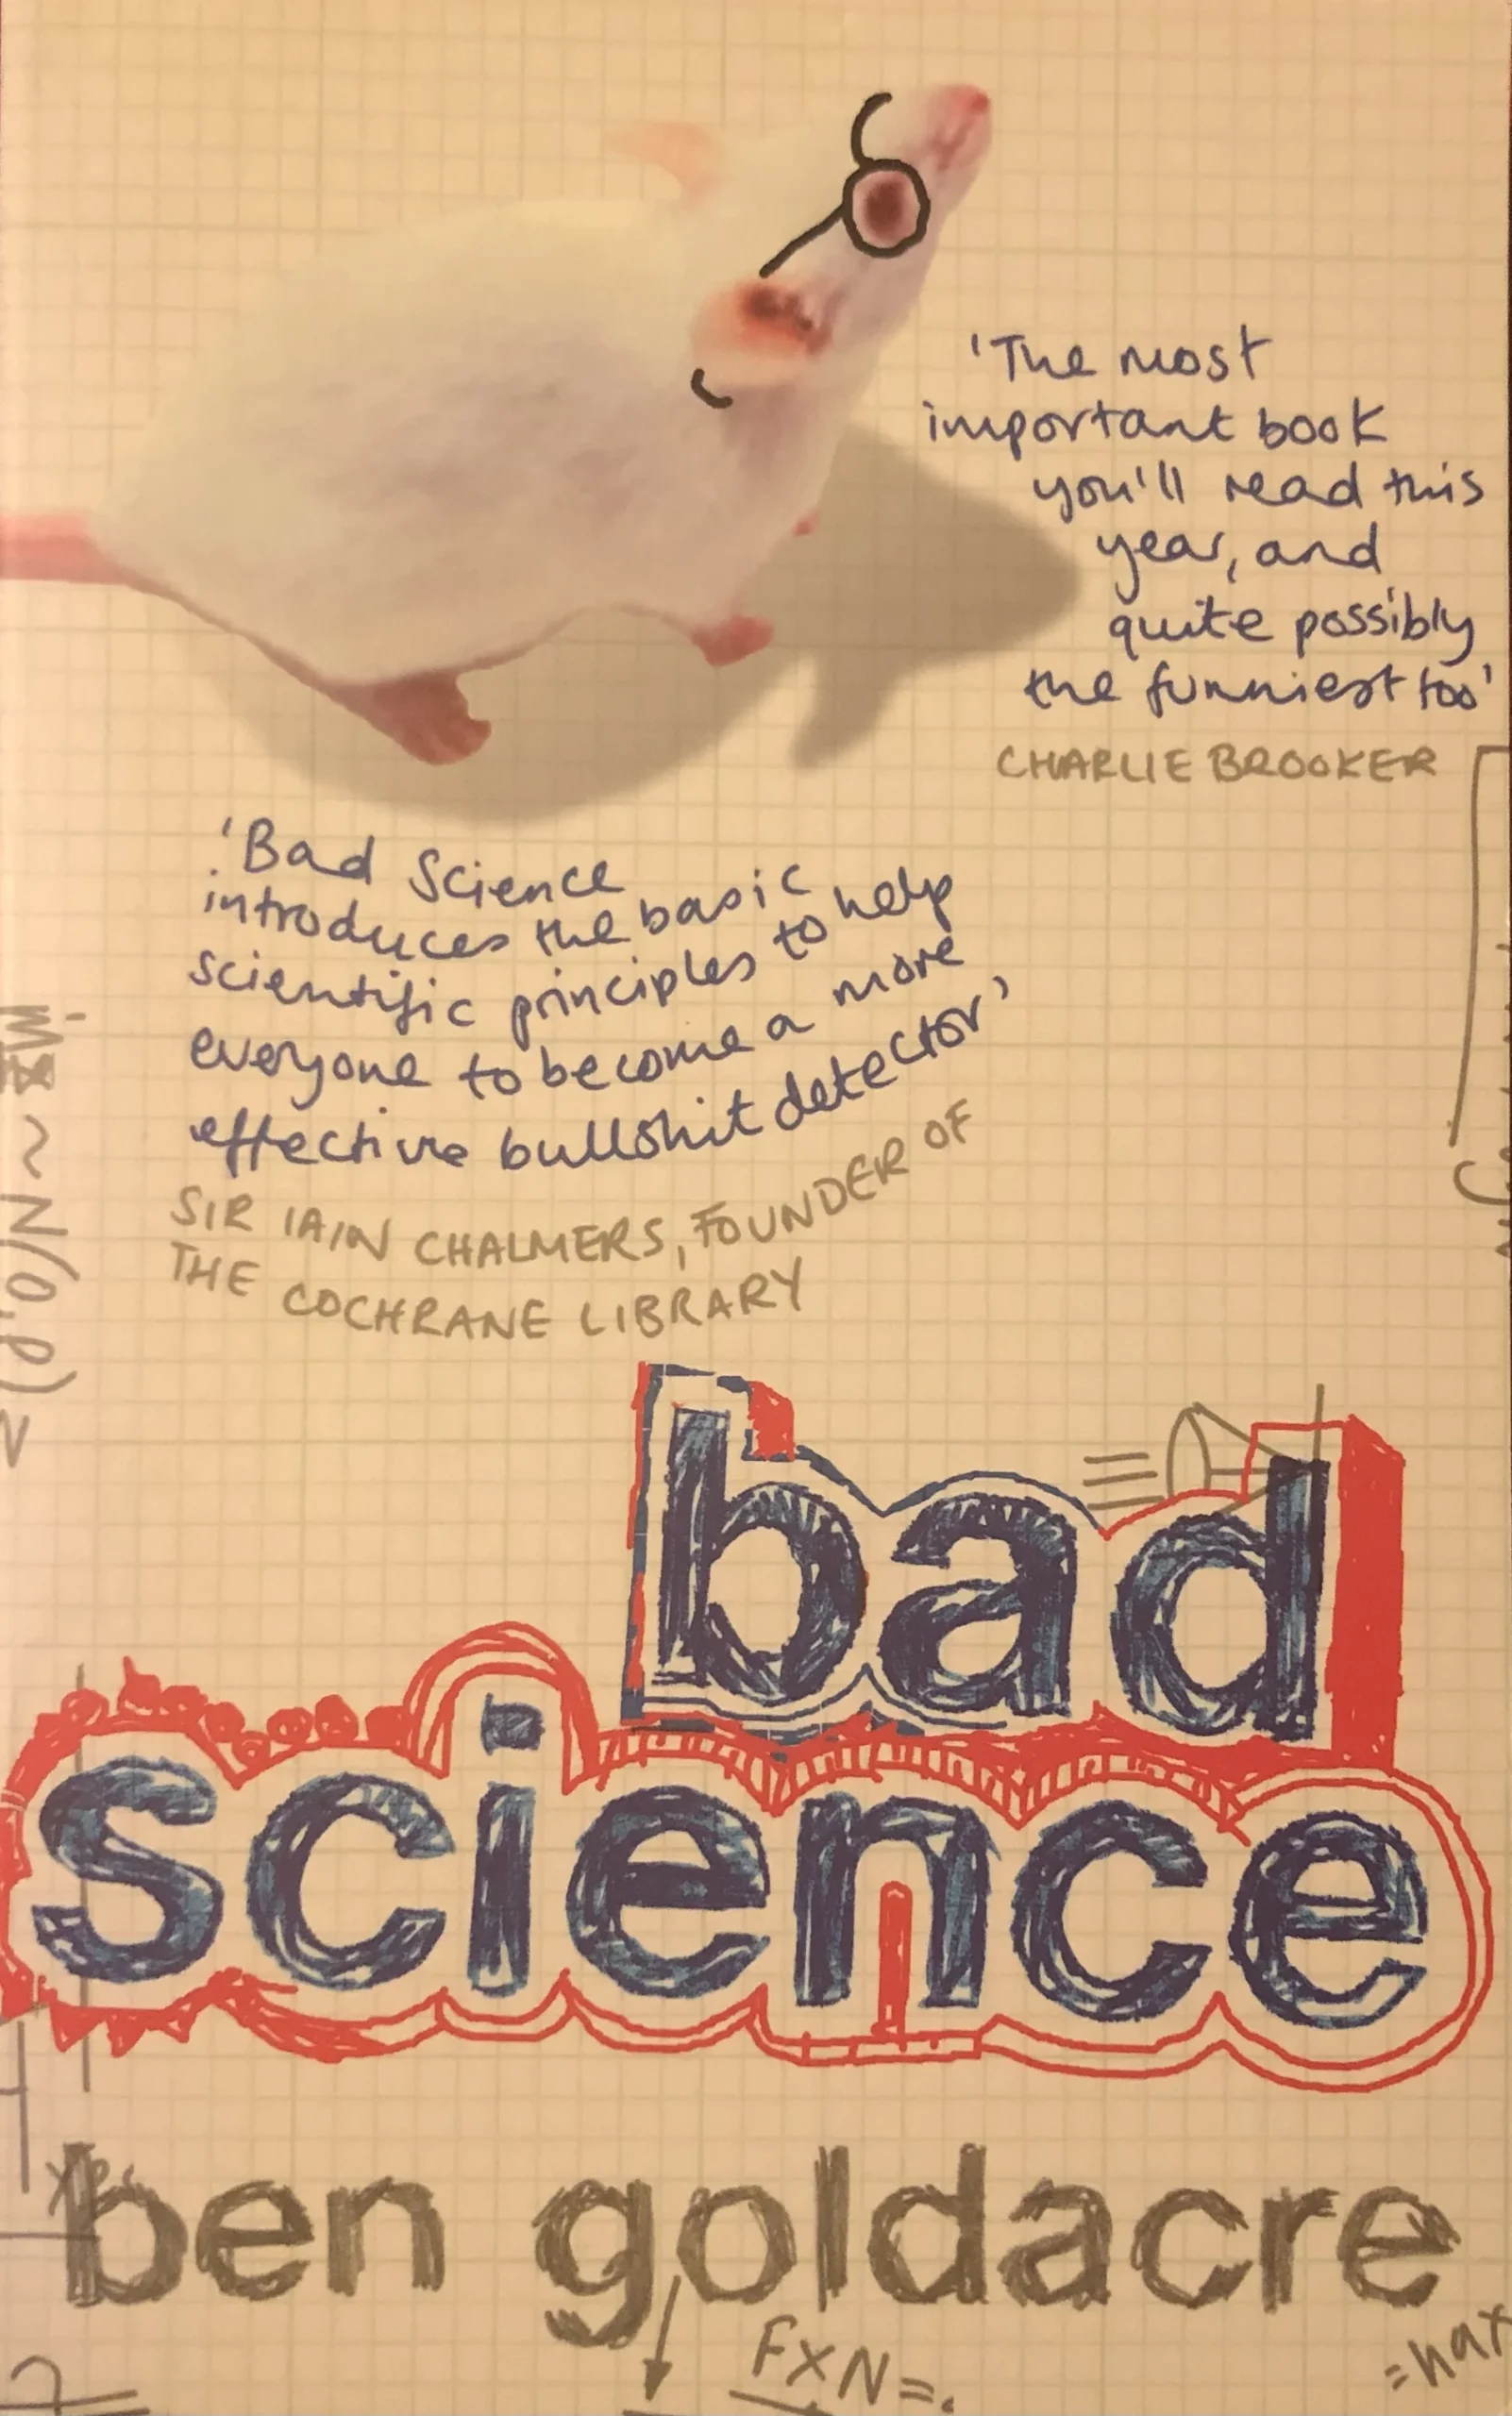 'The most
important book
you'll read this
year, and
quite possibly
the funniest too'
CHARLIE BROOKER
'Bad Science
introduces the basic
scientific principles to help
everyone to become a more
effective bullshit detector'
SIR IAIN CHALMERS, FOUNDER OF
THE COCHRANE LIBRARY
bad
science
ben goldacre
FXN=.